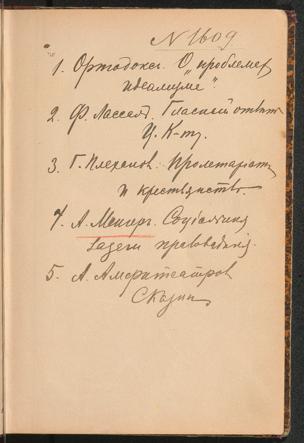 N 1609
1. Ортодокс. О „проблемах
идеализма".
2. Ф. Лассаль. Гласный ответ
Ц. К-ту.
3. Г. Плеханов. Пролетариат
и крестьянство.
4. А. Менгер. Социальныя
задачи правоведенія.
5. А. Амфитеатров
Сказки